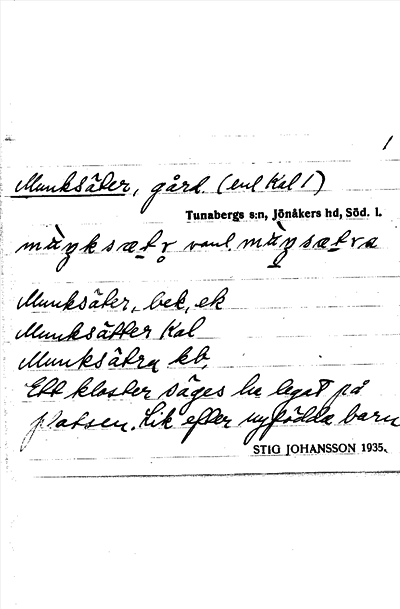 1
Munksäter, gård. (enl Kal 1)
Tunabergs s:n, Jönåkers hd, Söd. l.
vanl.
Munksäter, bek, ek
Munksätter Kal
Munksätra kb.
Ett kloster säges ha legat på
platsen. Lik efter nyfödda barn
STIG JOHANSSON 1935.